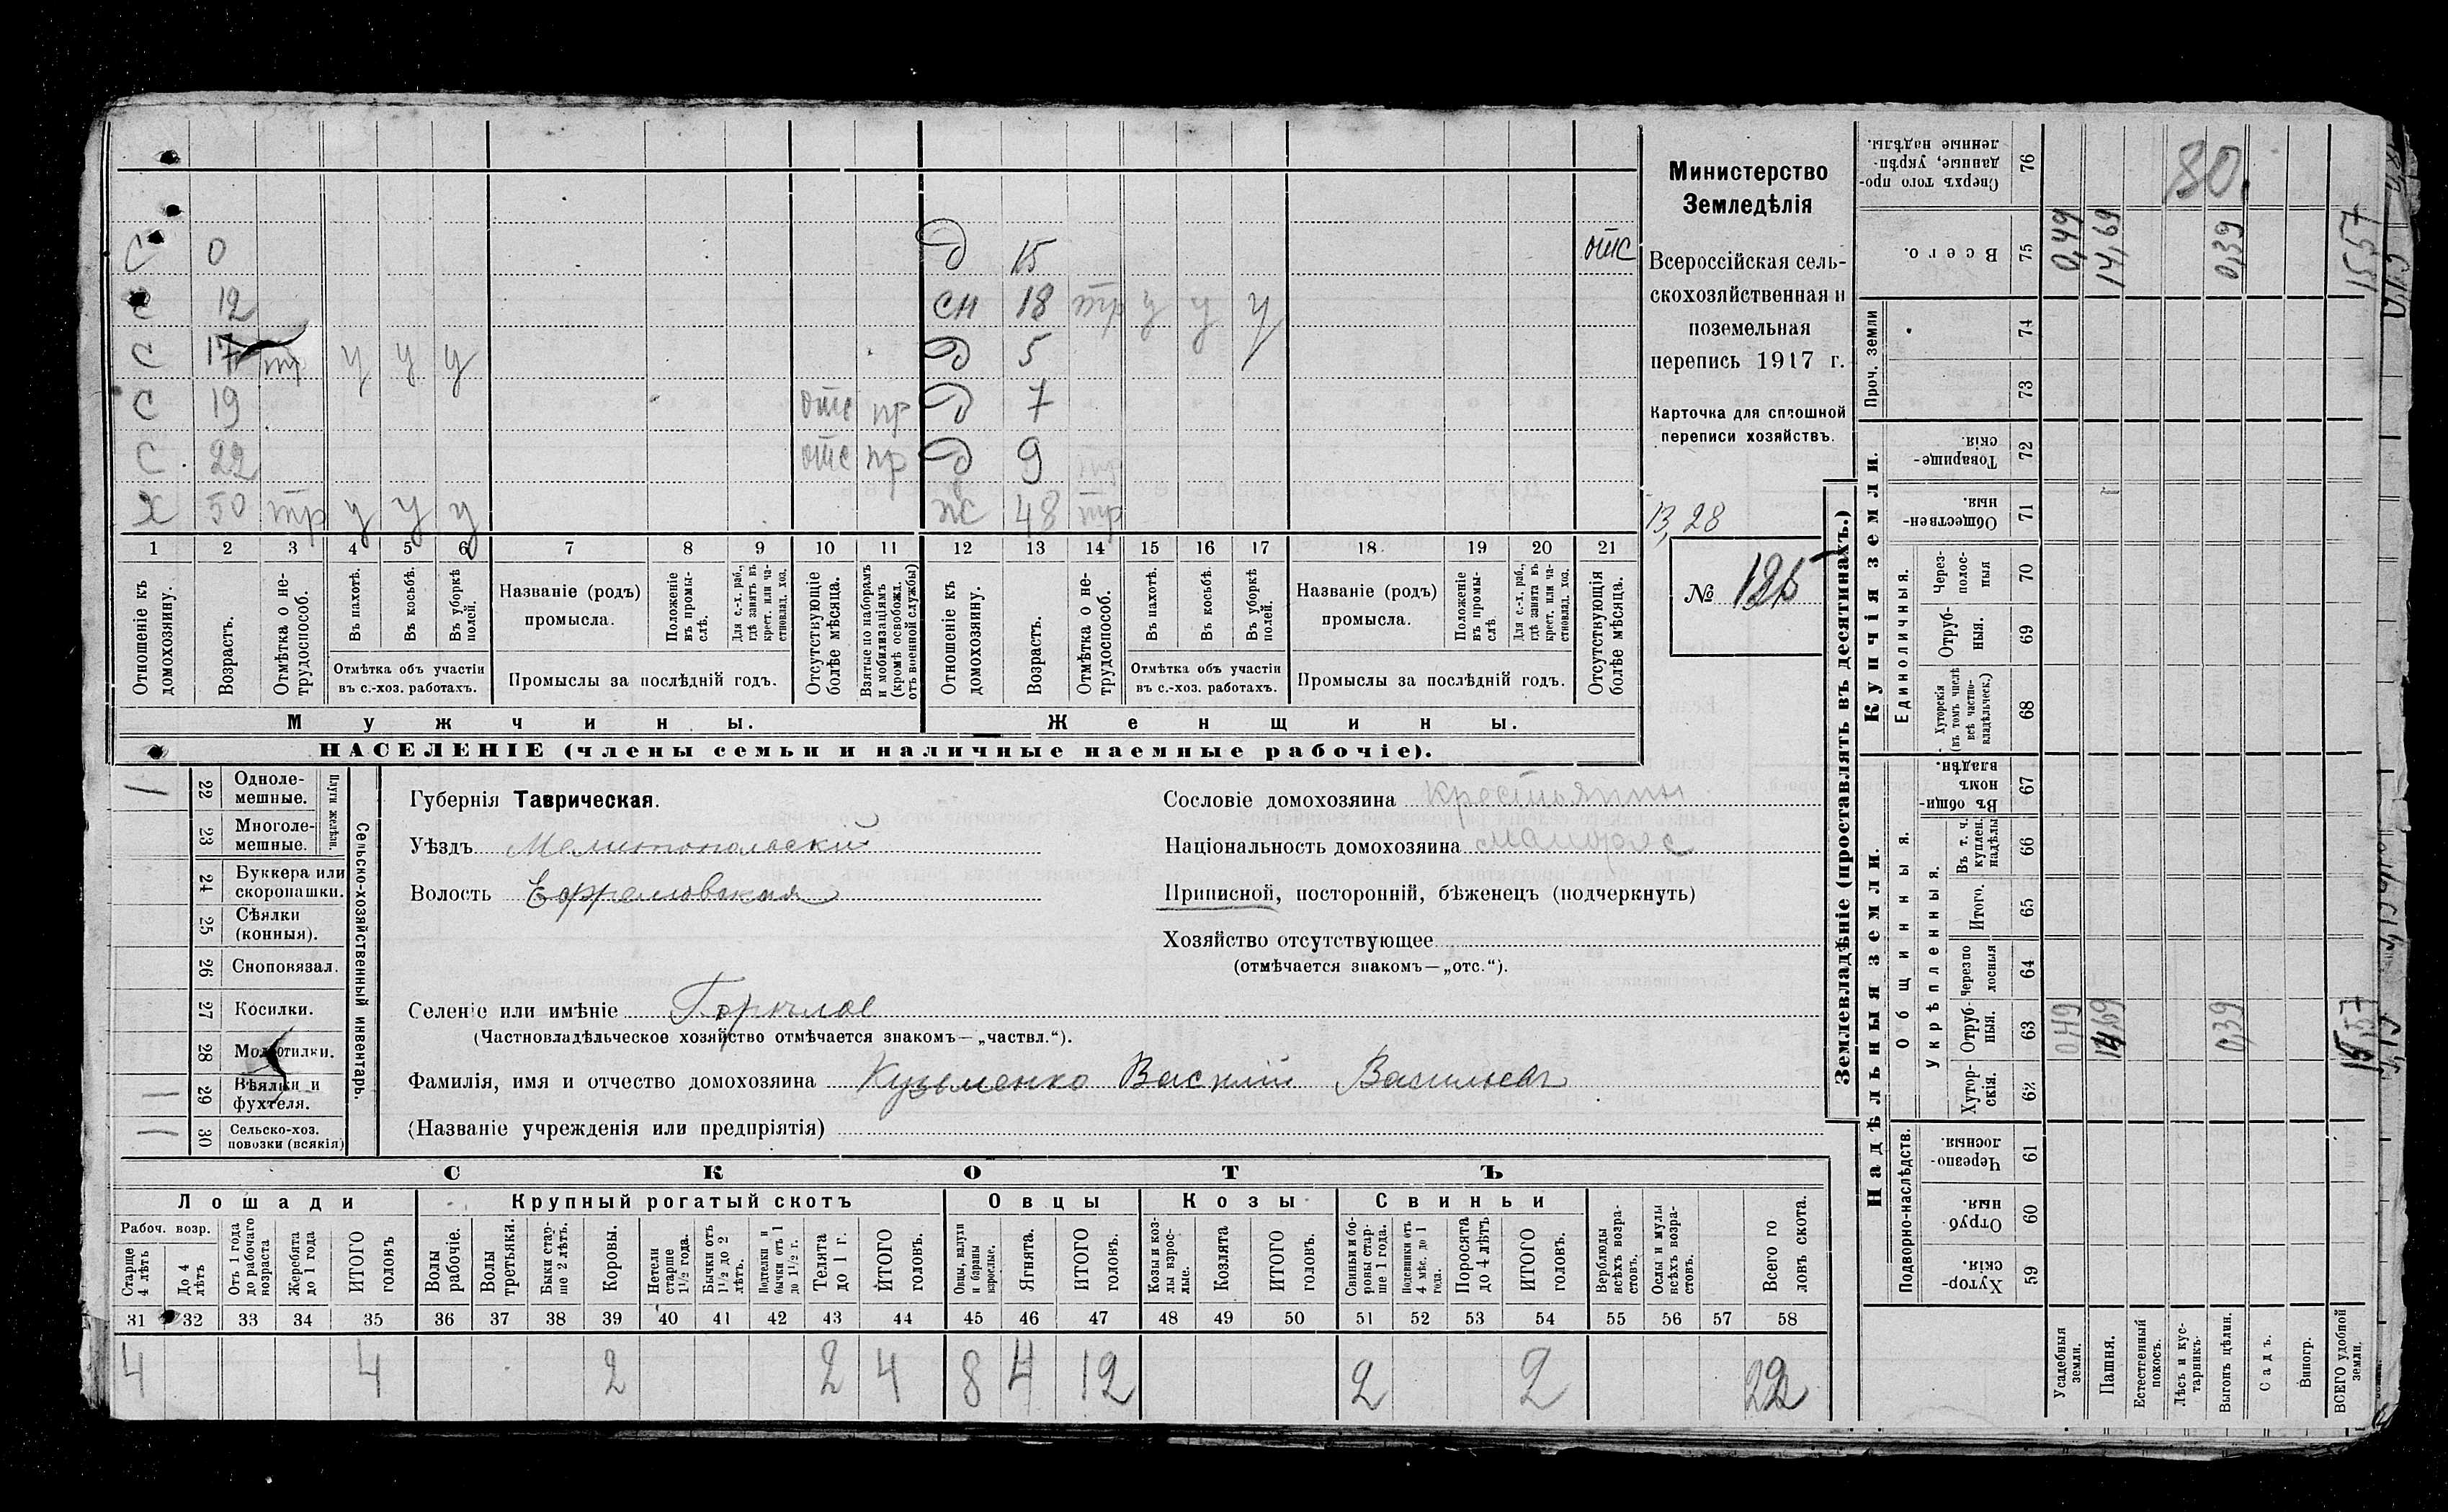 Министерство
Земледѣлія
Всероссійская сель-
скохозяйственная и
поземельная
перепись 1917 г.
Карточка для сплошной
переписи хозяйствъ.
13,28
№ 125
С 0
С 12
С 17 тр у у у
С 19 отс пр
С 22 отс пр
Х 50 тр у у у
Д 15 отс
сн 18 тр у у у
Д 5
Д 7
Д 9 тр
ж 48 тр
1 2 3 4 5 6 7 8 9 10 11 12 13 14 15 16 17 18 19 20 21
Отношеніе къ домохозяину.
Возрастъ.
Отмѣтка о не-трудоспособ.
Въ пахотѣ.
Въ косьбѣ.
Въ уборкѣ полей.
Отмѣтка объ участіи въ с.-хоз. работахъ.
Названіе (родъ) промысла.
Положеніе въ промы-слѣ.
Для с.-х. раб., гдѣ занятъ въ крест. или ча-стновлад. хоз.
Промыслы за послѣдній годъ.
Отсутствующіе болѣе мѣсяца.
Взятые по наборамъ и мобилизаціямъ (кромѣ освобожд. отъ военной службы)
Отношеніе къ домохозяину.
Возрастъ.
Отмѣтка о не-трудоспособ.
Въ пахотѣ.
Въ косьбѣ.
Въ уборкѣ полей.
Отмѣтка объ участіи въ с.-хоз. работахъ.
Названіе (родъ) промысла.
Положеніе въ промы-слѣ.
Для с.-х. раб., гдѣ занята въ крест. или ча-стновлад. хоз.
Промыслы за послѣдній годъ.
Отсутствующія болѣе мѣсяца.
Мужчины.
Женщины.
НАСЕЛЕНІЕ (члены семьи и наличные наемные рабочіе).
Сельско-хозяйственный инвентарь.
Плуги желѣзн.
22 Одноле-мешные.
23 Многоле-мешные.
24 Буккера или скоропашки.
25 Сѣялки (конныя).
26 Сноповязал.
27 Косилки.
28 Молотилки.
29 Вѣялки и фухтеля.
30 Сельско-хоз. повозки (всякія)
Губернія Таврическая.
Уѣздъ Мелитопольскій
Волость
Селеніе или имѣніе Горѣлое
(Частновладѣльческое хозяйство отмѣчается знакомъ—„частвл.“).
Фамилія, имя и отчество домохозяина Кузьменко Василій Васильев
(Названіе учрежденія или предпріятія)
Сословіе домохозяина крестьянин
Національность домохозяина малорос
Приписной, посторонній, бѣженецъ (подчеркнуть)
Хозяйство отсутствующее
(отмѣчается знакомъ—„отс.“).
СКОТЪ
Лошади
Крупный рогатый скотъ
Овцы
Козы
Свиньи
Рабоч. возр.
Старше 4 лѣтъ
До 4 лѣтъ
Отъ 1 года до рабочаго возраста
Жеребята до 1 года
ИТОГО головъ
Волы рабочіе.
Волы третьяки.
Быки стар-ше 2 лѣтъ.
Коровы.
Нетели старше 1½ года.
Бычки отъ 1½ до 2 лѣтъ.
Подтелки и бычки отъ 1 до 1½ г.
Телята до 1 г.
ИТОГО головъ.
Овцы, валухи и бараны взрослые.
Ягнята.
ИТОГО головъ.
Козы и коз-лы взрос-лые.
Козлята
ИТОГО головъ.
Свиньи и бо-ровы стар-ше 1 года.
Подсвинки отъ 4 мѣс. до 1 года.
Поросята до 4 лѣтъ
ИТОГО головъ.
Верблюды всѣхъ возра-стовъ.
Ослы и мулы всѣхъ возра-стовъ.
Всего го ловъ скота.
31 32 33 34 35 36 37 38 39 40 41 42 43 44 45 46 47 48 49 50 51 52 53 54 55 56 57 58
4 4 2 2 4 8 4 12 2 2 22
Землевладѣніе (проставлять въ десятинахъ.)
Купчія земли.
Надѣльныя земли.
Сверхъ того про-данные, укрѣп-ленные надѣлы. 76
80.
Всего. 75
0,49
14,69
0,39
1557
Проч. земли 74 73
Товарище-скія. 72
Обществен-ныя. 71
Единоличныя.
Через-полос-ныя 70
Отруб-ныя. 69
Хуторскія (въ томъ числѣ всѣ частно-владѣльческ.) 68
Общинныя.
Въ общи-номъ владѣн. 67
Укрѣпленныя.
Въ т. ч. куплен. надѣлы 66
Итого. 65
Черезпо лосныя 64
Отруб-ныя. 63
0,49
14,69
0,39
1557
Хутор-скія. 62
Подворно-наслѣдств.
Черезпо-лосныя 61
Отруб-ныя. 60
Хутор-скія. 59
Усадебныя земли.
Пашня.
Естественный покосъ.
Лѣсъ и кус-тарникъ.
Выгонъ цѣлин.
Садъ.
Виногр.
ВСЕГО удобной земли.